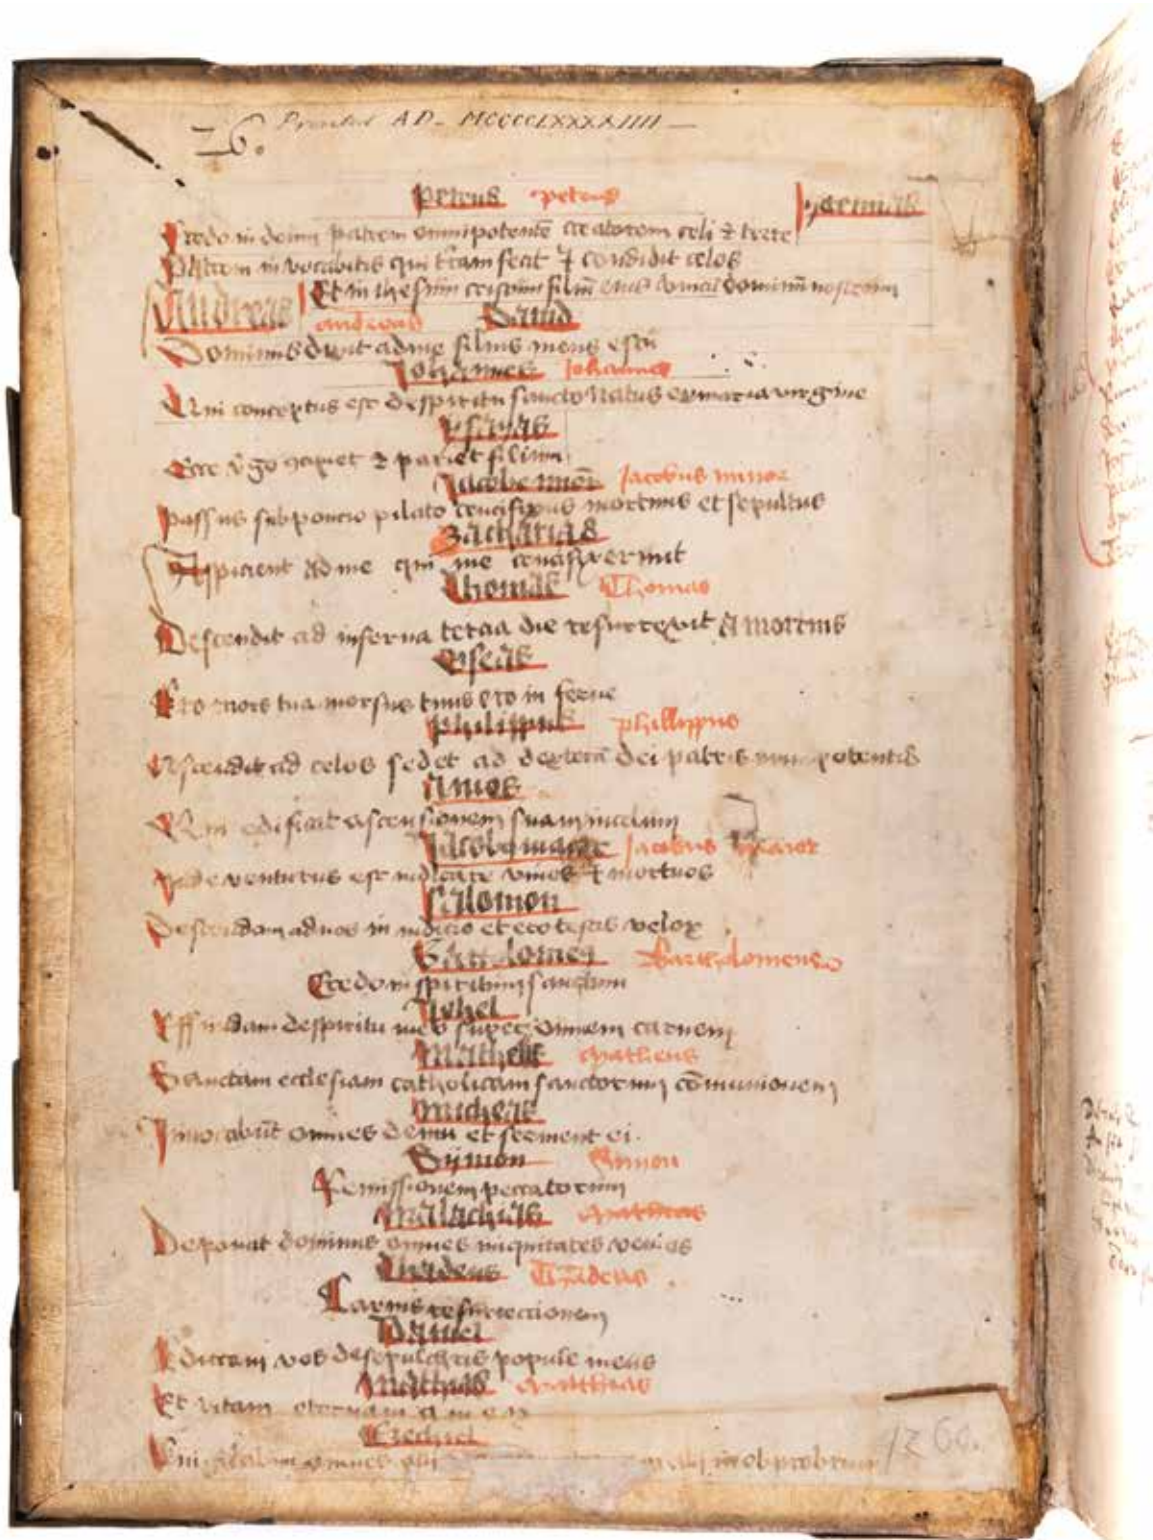 26. Printed AD. MCCCCLXXXXIIII
Petrus petrus Jheremias
Credo in deum patrem omnipotentē creatorem celi & terre
Patrem in vocabitis qui t̄ram fecit & condidit celos
Et in ihesum cristum filiū eius dominum nostrum
Andreas andreas Dauid
Dominus dixit ad me filius meus es tu
Johannes Johannes
Qui conceptus est de spiritu sancto Natus ex maria virgine
Ysayas
Ecce v̄go ꝯcipiet & pariet filium
Jacobe minor Jacobus minor
passus sub poncio pilato crucifixus mortuus et sepultus
Zacharias
Aspicient ad me quem me crucifixerunt
Thomas Thomas
Descendit ad inferna tercia die resurrexit a mortuis
Oseas
Ero mors tua morsus tuus ero in ferne
Philippus phillippus
Ascendit ad celos sedet ad dexterā dei patris omnipotentis
Amos
Qui edificat ascensionem suam in celum
Jacobe maior Jacobus Maior
Inde venturus est iudicare viuos & mortuos
Salomon
Descendam ad uos in iudicio et ero testis velox
Bartolomeus Bartholomeus
Credo in spiritum sanctum
Johel
Effundam de spiritu meo super omnem carnem
Matheus Matheus
Sanctam ecclesiam catholicam sanctorum cōmunionem
Micheas
Inuocabūt omnes deum et seruient ei.
Symon Simon
Remissionem peccatorum
Malachias Mathias
Deponat dominus omnes iniquitates vestras
Thadeus Thadeus
Carnis resurrectionem
Daniel
Educam vos de sepulchris popule meus
Mathias Matthias
Et vitam eternam amen
Ezechiel
omnes alii in obprobrium
1260.